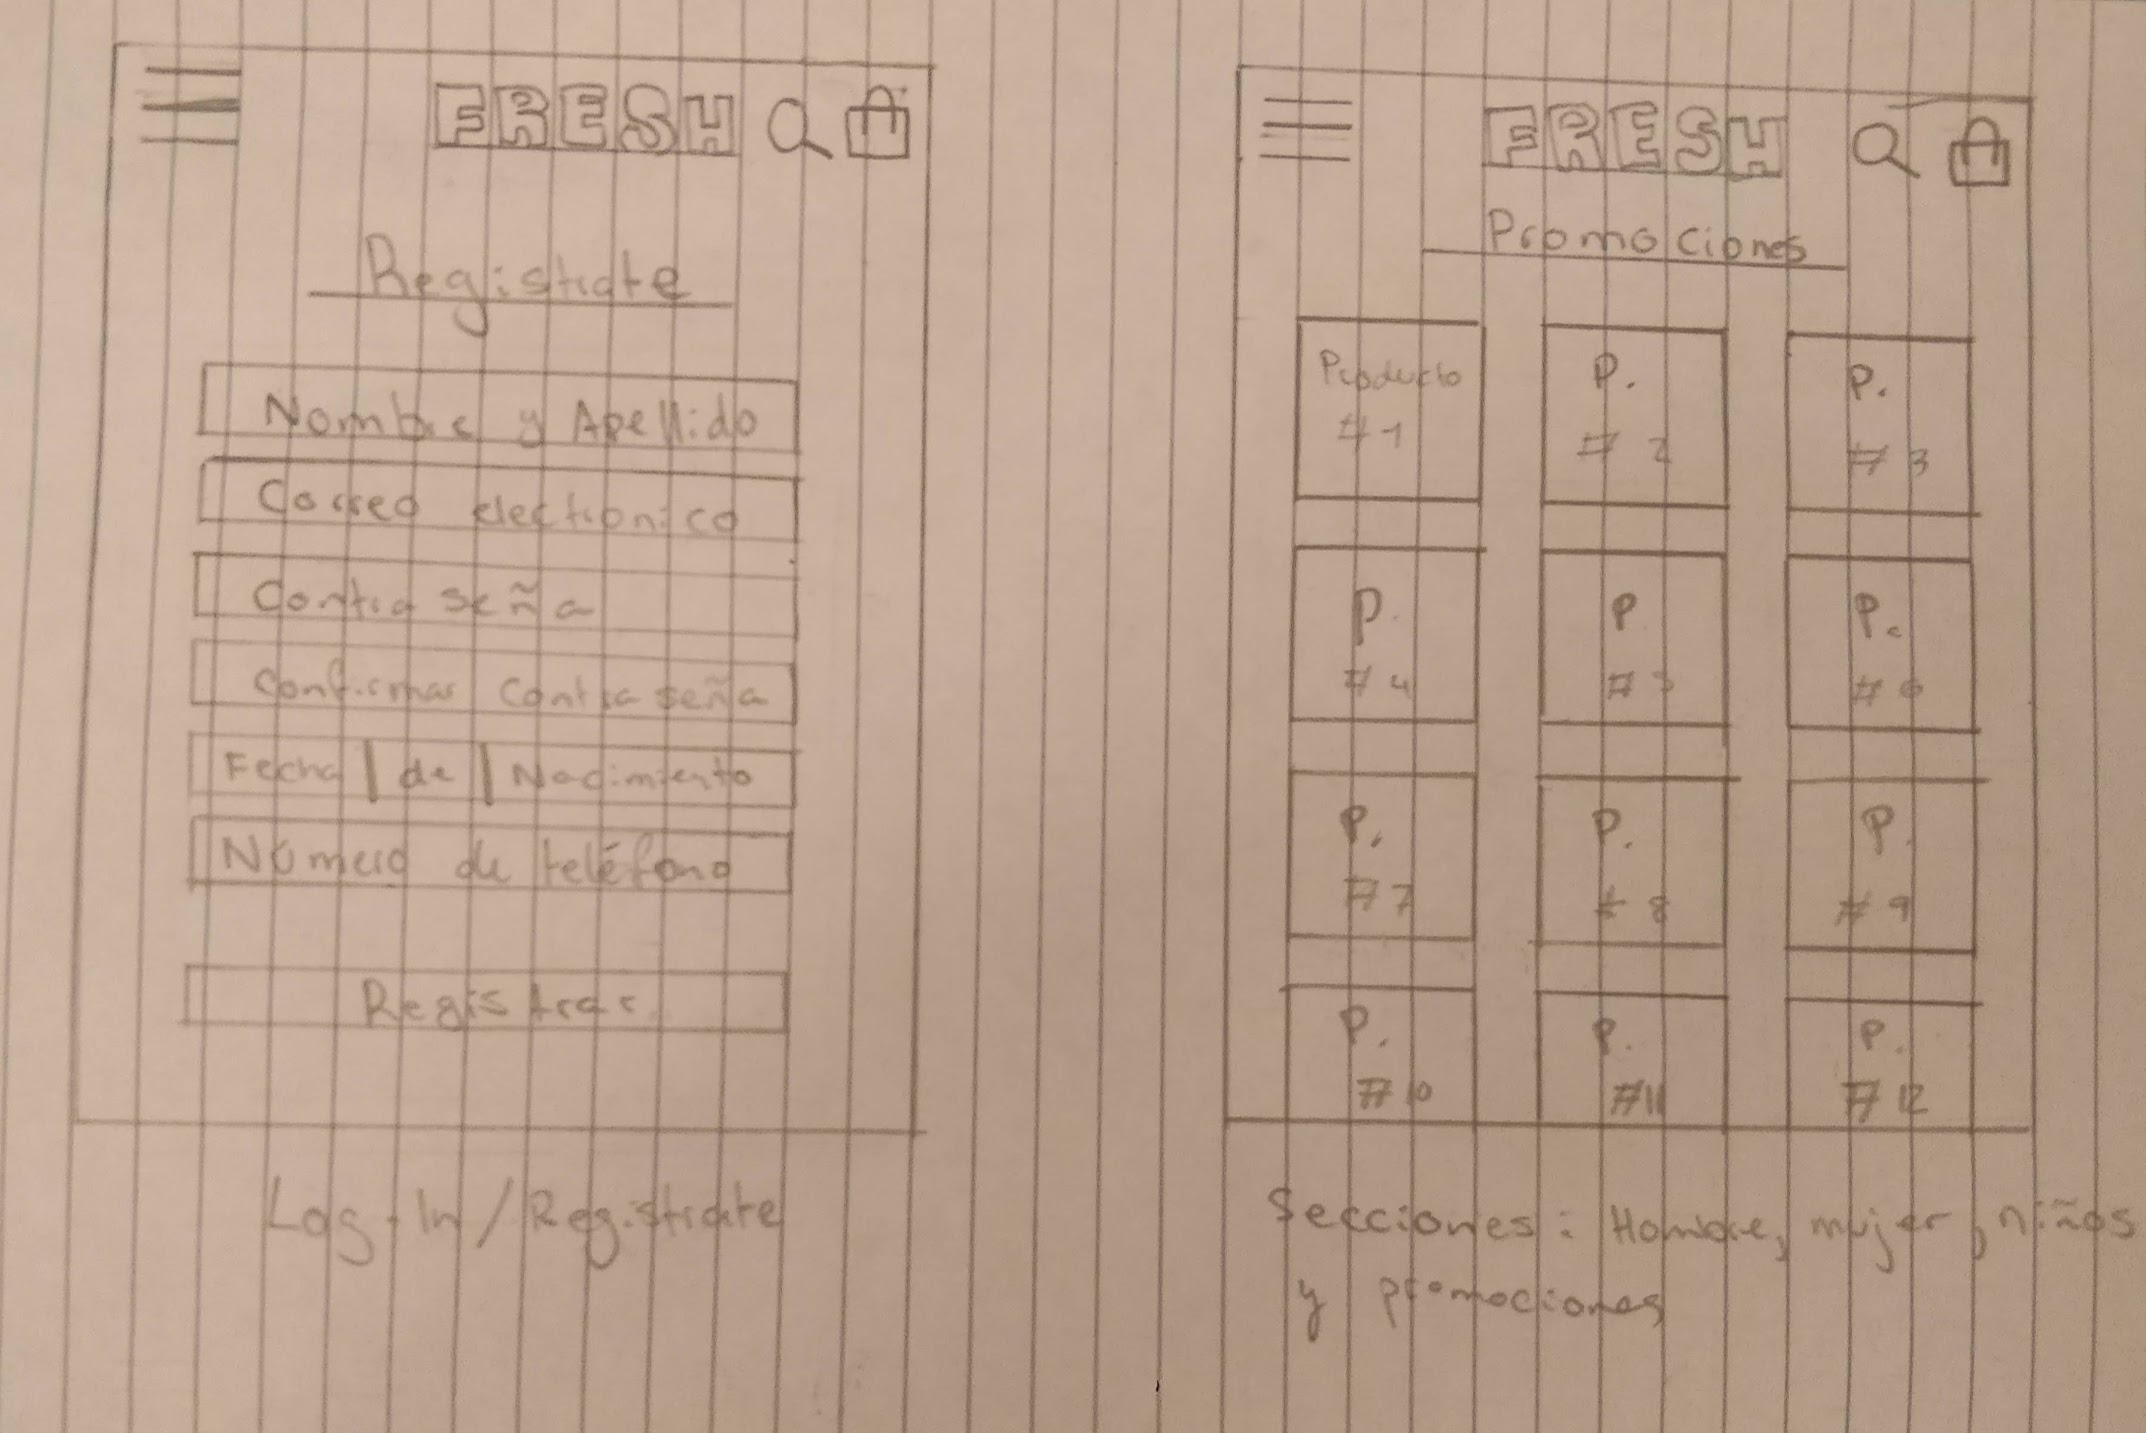 FRESH
Registrate
Nombre y Apellido
Correo electronico
Contraseña
Confirmar contraseña
Fecha | de | Nacimiento
Número de teléfono
Registrar
Log-In/Registrate
FRESH
Promociones
Producto #1
P. #2
P. #3
P. #4
P #5
P. #6
P. #7
P. #8
P. #9
P. #10
P. #11
P. #12
Secciones: Hombre, mujer, niños
y promociones